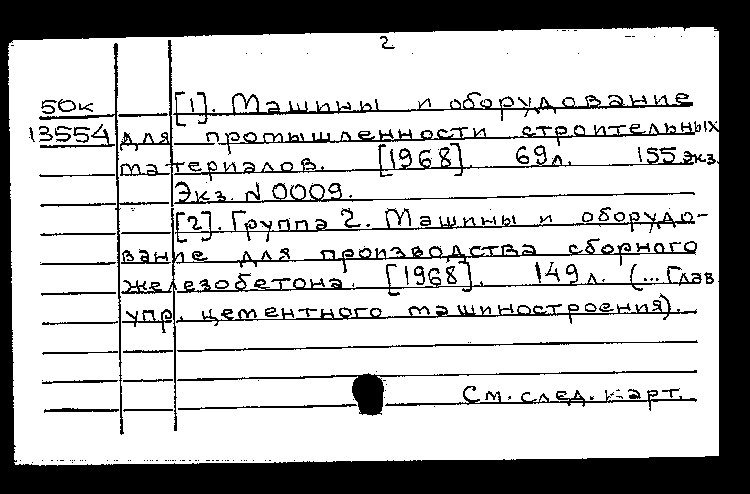 2
50к [1]. Машины и оборудование
13554 для промышленности строительных
материалов. [1968]. 69л. 155 экз.
Экз. N 0009.
[2]. Группа 2. Машины и оборудо-
вание для производства сборного
железобетона. [1968]. 149л. (... Глав.
упр. цементного машиностроения).
См. след. карт.